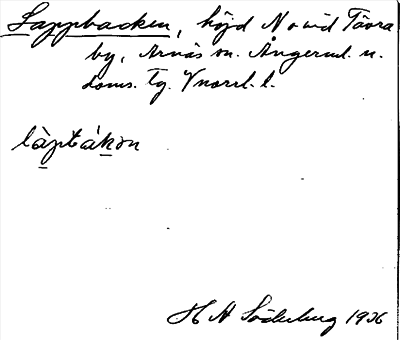 Lappbacken, höjd N o vid Tävra
by, Arnäs sn. Ångerml. n.
doms. tg. Vnorrl. l.
làptákən
H A Söderberg 1936